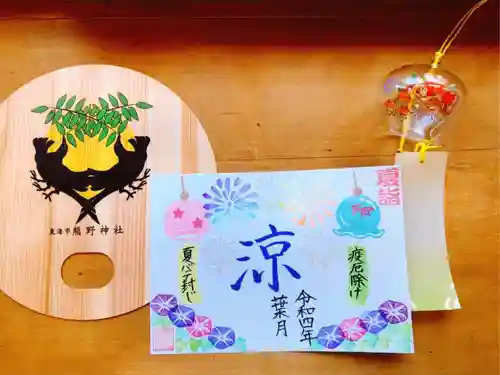 東海市熊野神社
夏詣
涼
夏バテ封じ
疫厄除け
令和四年
葉月